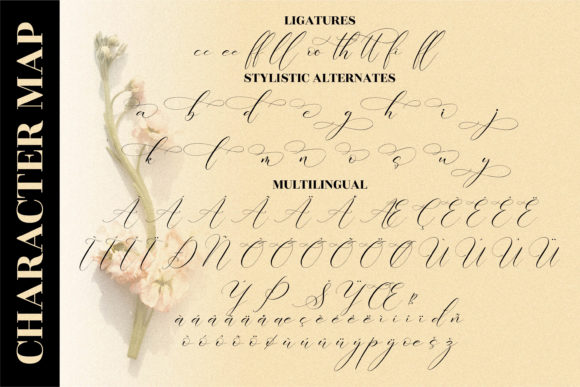 CHARACTER MAP
LIGATURES
cc ee ff ll ro th tt fi ll
STYLISTIC ALTERNATES
a b d e g h i j
k l m n o s u y
MULTILINGUAL
À Á Â Ã Ä Å Æ Ç È É Ê Ë
Ì Í Î Ï Ð Ñ Ò Ó Ô Õ Ö Ø Ù Ú Û Ü
Ý Þ Š Ÿ Œ
à á â ã ä å æ ç è é ê ë ì í î ï d ñ